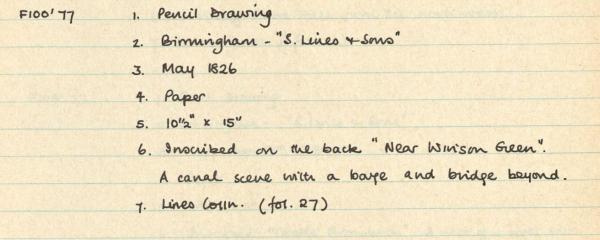 F100'77 1. Pencil Drawing
2. Birmingham - "S. Lines & Sons"
3. May 1826
4. Paper
5. 10½" x 15"
6. Inscribed on the back "Near Winson Green".
A canal scene with a barge and bridge beyond.
7. Lines Colln. (fol. 27)